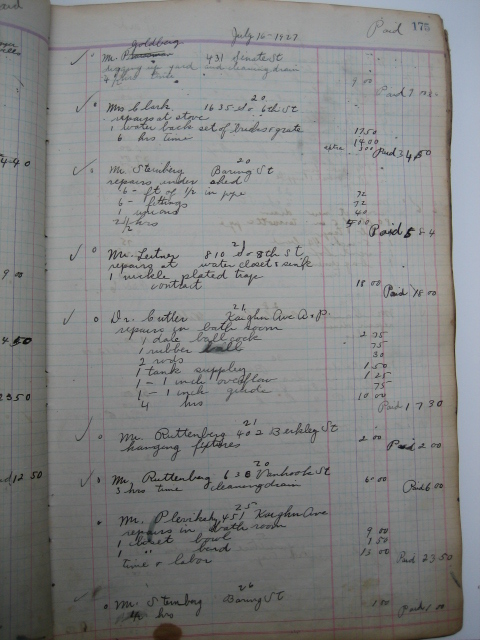 July 16-1927 Paid 175
Goldberg
Mr. 431 Senate St
rigging up yard and cleaning drain
9 00
Paid 9 00
20
Mrs Clark 1635 So 6th St
repairs at stove
1 water back set of bricks & grate 17 50
6 hrs time 14 00
extra 3 00 Paid 34,50
20
Mr. Sternberg Baring St
repairs under shed
6 - ft of 1/2 in pipe 72
6 - fittings 72
1 unions 40
2 1/2 hrs Paid 5 84
21
Mr. Leitner 810 So 8th St
repairs at water closet & sink
1 nickle plated trap
contract 18 00
Paid 18 00
21
Dr. Cutler Kaighn Ave
repairs in bath room
1 ball cock 2 75
1 rubber ball 75
2 rods 30
1 tank supply 1.50
1 - 1 inch overflow 1.25
1 - 1 inch 75
4 hrs 10 00
Paid 17 30
21
Mr. Ruttenberg 402 Berkley St
hanging fixtures 2 00
Paid 2 00
20
Mr. Ruttenberg 638 Vanhook St
3 hrs time cleaning drain 6 00
Paid 6 00
25
Mr. 451 Kaighn Ave
repairs in bath room
1 closet bowl 9 00
1 " bend 1 50
time & labor 13 00
Paid 23 50
26
Mr. Sternberg Baring St
hrs 1 00
Paid 1 00